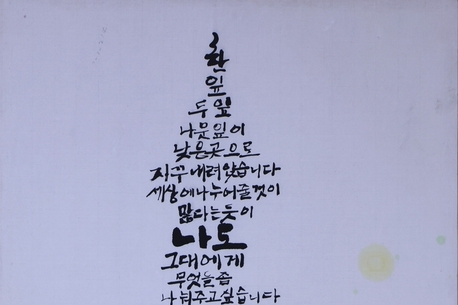 한
잎
두 잎
나뭇잎이
낮은 곳으로
자꾸 내려앉습니다
세상에 나누어줄 것이
많다는 듯이
나도
그대에게
무엇을 좀
나눠주고 싶습니다